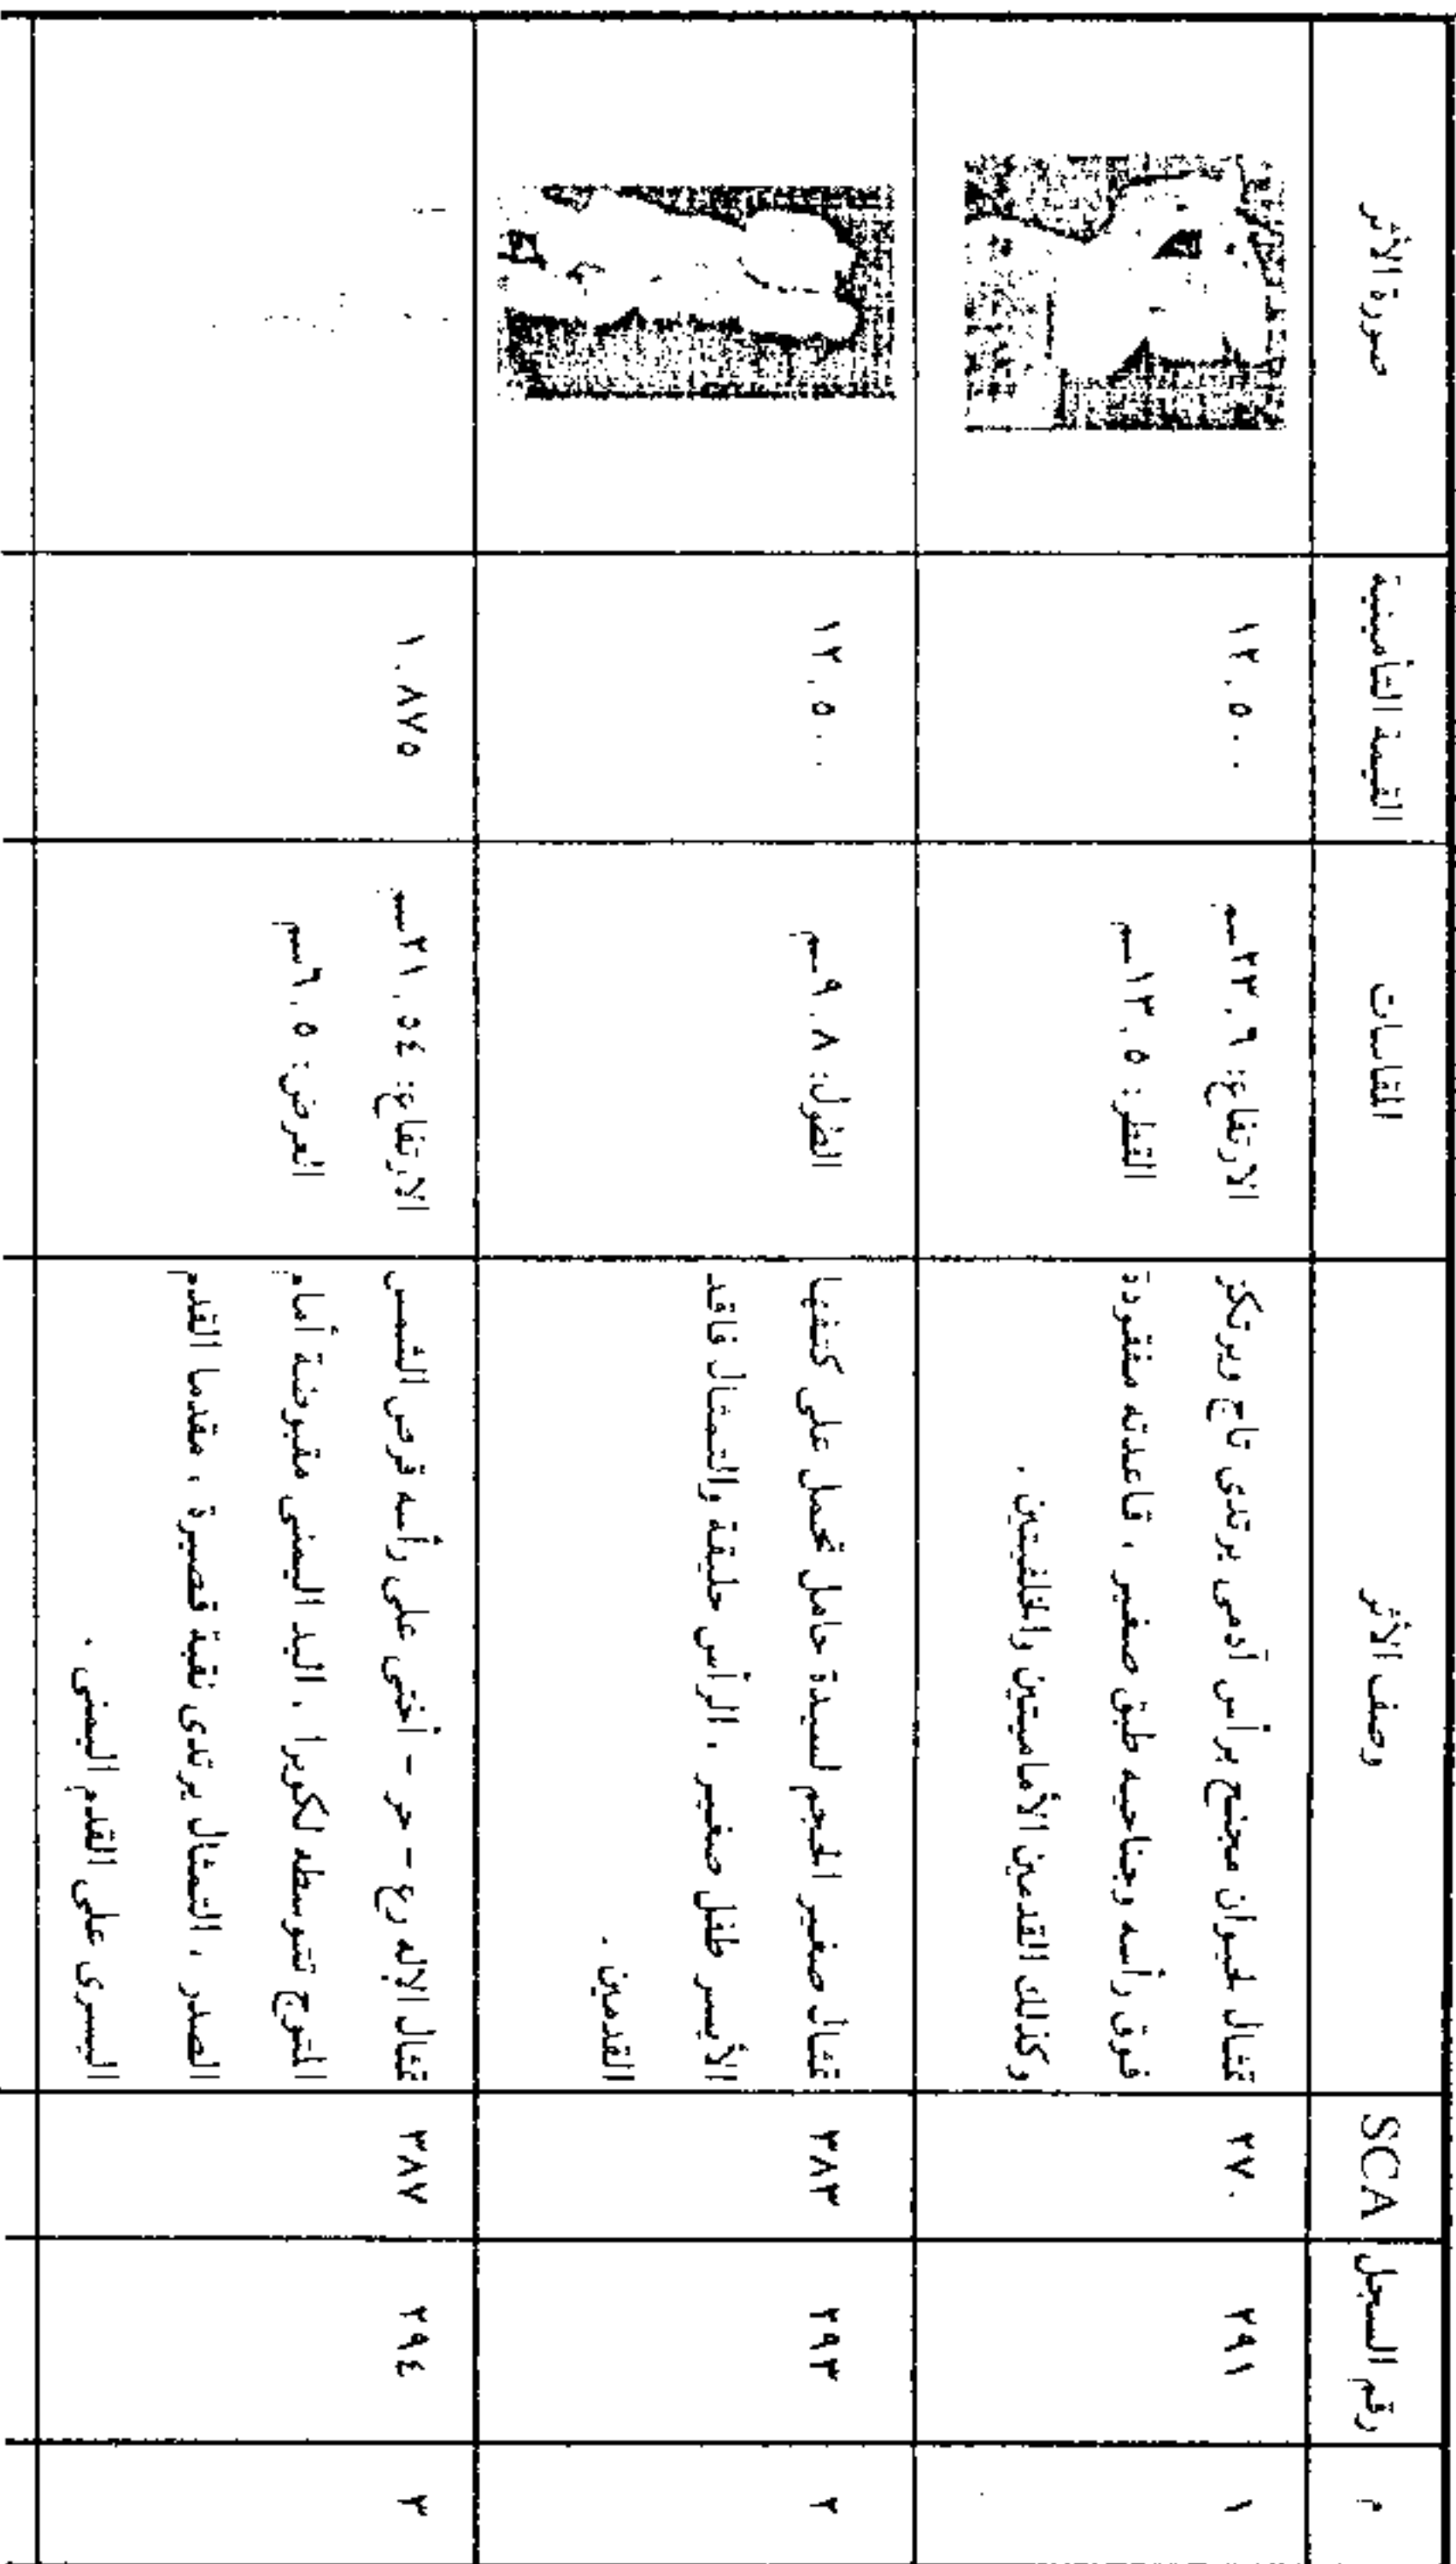 م
رقم السجل
SCA
وصف الأثر
المقاسات
القيمة التأمينية
صورة الأثر
١
٢٩١
٣٧٠
تمثال لحيوان مجنح برأس آدمى يرتدى تاج ويرتكز
فوق رأسه وجناحيه طبق صغير ، قاعدته مفقودة
وكذلك القدمين الأماميتين والخلفيتين .
الارتفاع: ٢٣.٩سم
القطر: ١٣.٥سم
١٢.٥٠٠
٢
٢٩٣
٣٨٣
تمثال صغير الحجم لسيدة حامل تحمل على كتفها
الأيسر طفل صغير ، الرأس حليقة والتمثال فاقد
القدمين .
الطول: ٩.٨سم
١٢.٥٠٠
٣
٢٩٤
٣٨٧
تمثال الإله رع - حر - أختى على رأسه قرص الشمس
المتوج تتوسطه لكوبرا ، اليد اليمنى مقبوضة أمام
الصدر ، التمثال يرتدى نقبة قصيرة ، مقدما القدم
اليسرى على القدم اليمنى .
الارتفاع: ٢١.٥٤سم
العرض: ٦.٥سم
١.٨٧٥